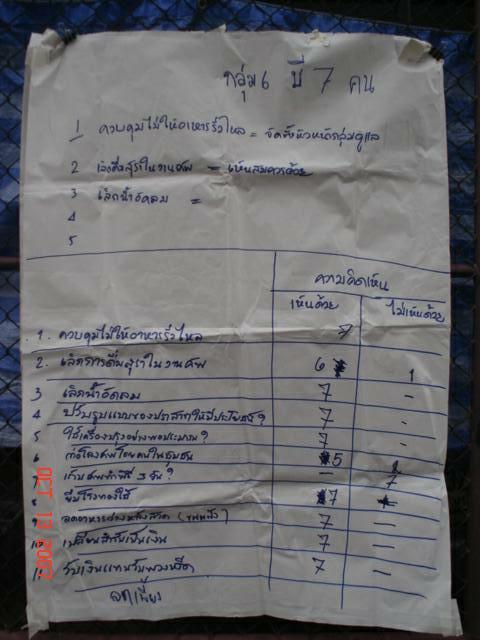 กลุ่ม 6 มี 7 คน
1 ควบคุมไม่ให้อาหารรั่วไหล = จัดตั้งหัวหน้ากลุ่มดูแล
2 เลิกดื่มสุราในงานศพ = เห็นสมควรด้วย
3 เลิกน้ำอัดลม =
4
5
ความคิดเห็น
เห็นด้วย ไม่เห็นด้วย
1. ควบคุมไม่ให้อาหารรั่วไหล 7
2. เลิกการดื่มสุราในงานศพ 6 1
3 เลิกน้ำอัดลม 7 -
4 ปรับรูปแบบของปราสาทให้มีประโยชน์? 7 -
5 ใช้เครื่องปรุงอย่างพอประมาณ? 7 -
6 ทำโลงศพโดยคนในชุมชน 5 2
7 เก็บศพทำพิธี 3 วัน? - 7
8 ยืมโรงทองใช้ 7 -
9 ลดอาหารว่างหลังสวด (ขนมปัง) 7 -
10 เปลี่ยนผ้าเป็นเงิน 7 -
11 รับเงินแทนรับพวงหรีด 7 -
OCT 13 2007